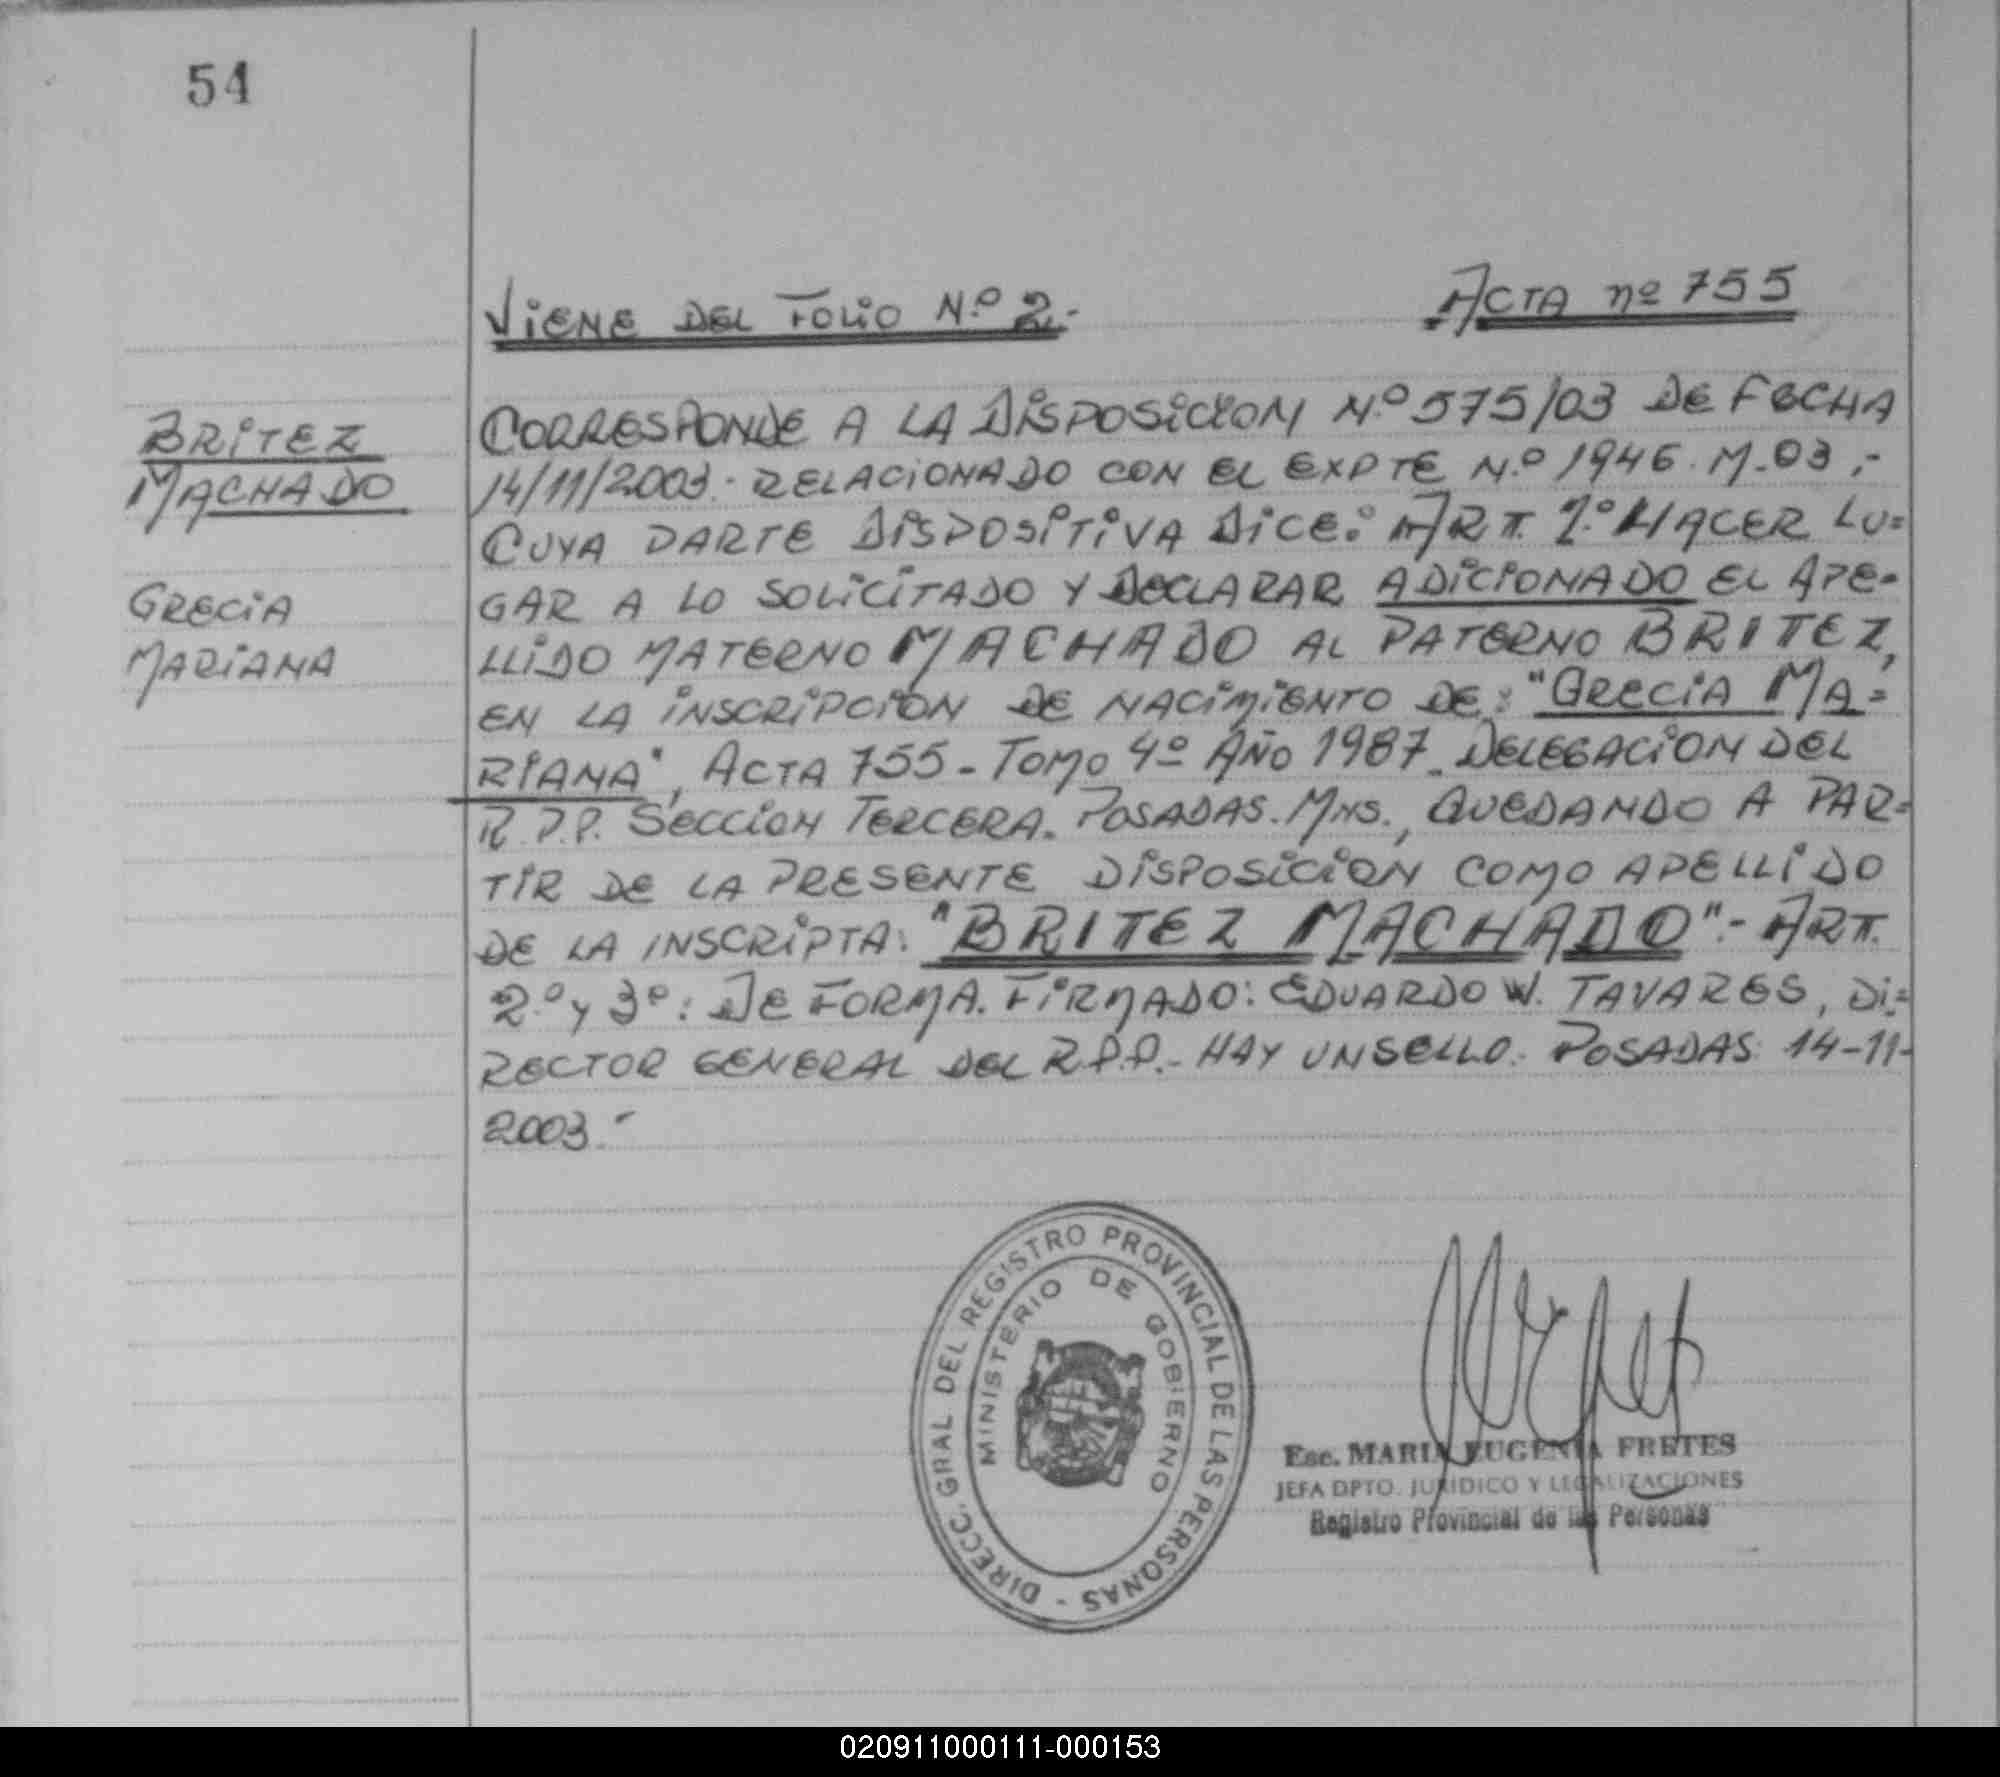 54
VIENE DEL FOLIO N.º 2.-
ACTA nº 755
BRITEZ
MACHADO
GRECIA
MARIANA
CORRESPONDE A LA DISPOSICION N.º 575/03 DE FECHA
14/11/2003.- RELACIONADO CON EL EXPTE N.º 1946. M-03,-
CUYA PARTE DISPOSITIVA DICE: ART. 1.º HACER LU=
GAR A LO SOLICITADO Y DECLARAR ADICIONADO EL APE-
LLIDO MATERNO MACHADO AL PATERNO BRITEZ,
EN LA INSCRIPCION DE NACIMIENTO DE: "GRECIA MA=
RIANA", ACTA 755- TOMO 4º AÑO 1987. DELEGACION DEL
R.P.P. SECCION TERCERA. POSADAS. MNS., QUEDANDO A PAR=
TIR DE LA PRESENTE DISPOSICION COMO APELLIDO
DE LA INSCRIPTA: "BRITEZ MACHADO".- ART.
2.º y 3º: DE FORMA. FIRMADO: EDUARDO W. TAVARES, DI=
RECTOR GENERAL DEL R.P.P.- HAY UN SELLO. POSADAS 14-11-
2003.-
DIRECC. GRAL DEL REGISTRO PROVINCIAL DE LAS PERSONAS -
MINISTERIO DE GOBIERNO
Esc. MARIA EUGENIA FRETES
JEFA DPTO. JURIDICO Y LEGALIZACIONES
Registro Provincial de las Personas
020911000111-000153